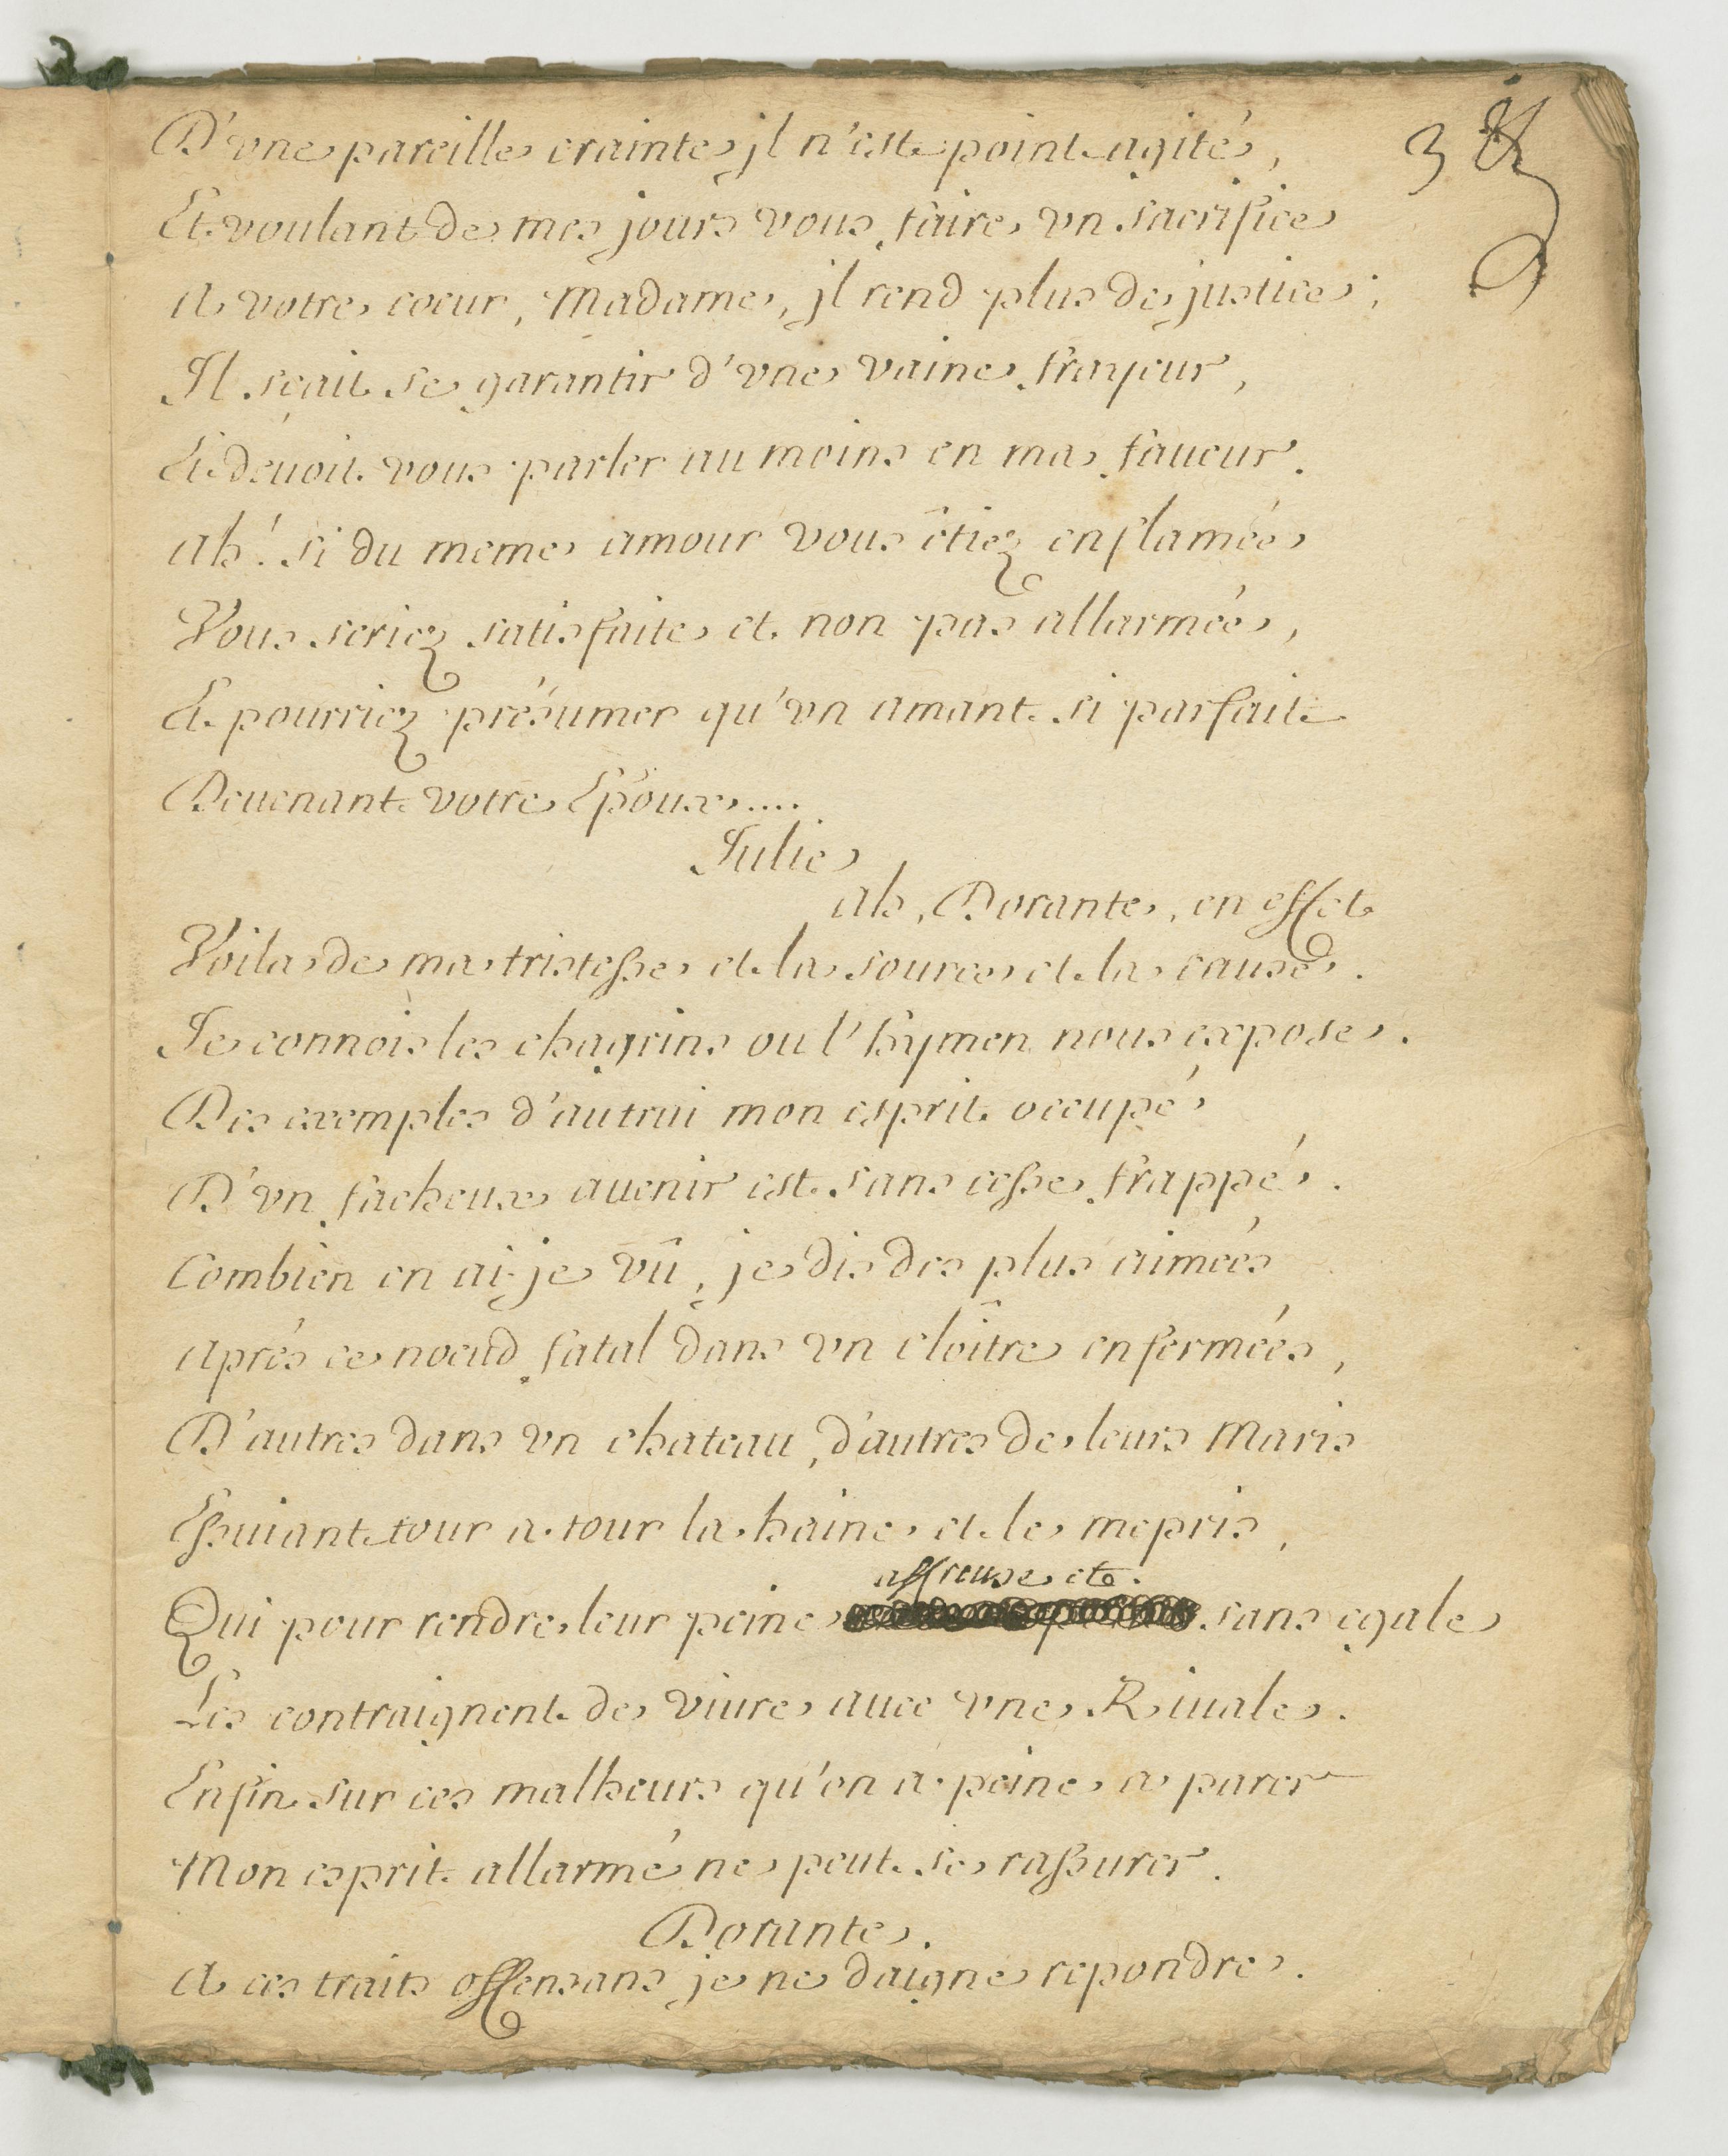 D'vne pareille crainte jl n'est point agité,
3
Et voulant de mes jours vous faire vn sacrifice
A votre coeur, Madame, jl rend plus de justice;
Il sçait se garantir d'vne vaine frayeur,
Et deuoit vous parler au moins en ma faueur.
ah! si du meme amour vous êtiez enflamée
Vous seriez satisfaite et non pas allarmée,
Et pourriez présumer qu'vn amant si parfait
Deuenant votre Epoux....
Julie
ah, Dorante, en effet
Voila de ma tristesse et la source et la cause.
Je connois les chagrins ou l'hymen nous expose.
Des exemples d'autrui mon esprit occupé
D'vn facheux auenir est sans cesse frappé.
Combien en ai-je vû, je dis des plus aimées
aprés ce noeud fatal dans vn cloître enfermées,
D'autres dans vn chateau, d'autres de leurs Maris
Essuiant tour a tour la haine et le mepris,
affreuse et
Qui pour rendre leur peine sans egale
Les contraignent de viure auec vne Riuale.
Enfin sur ces malheurs qu'on a peine a parer
Mon esprit allarmé ne peut se rassurer.
Dorante.
A ces traits offensans je ne daigne repondre.